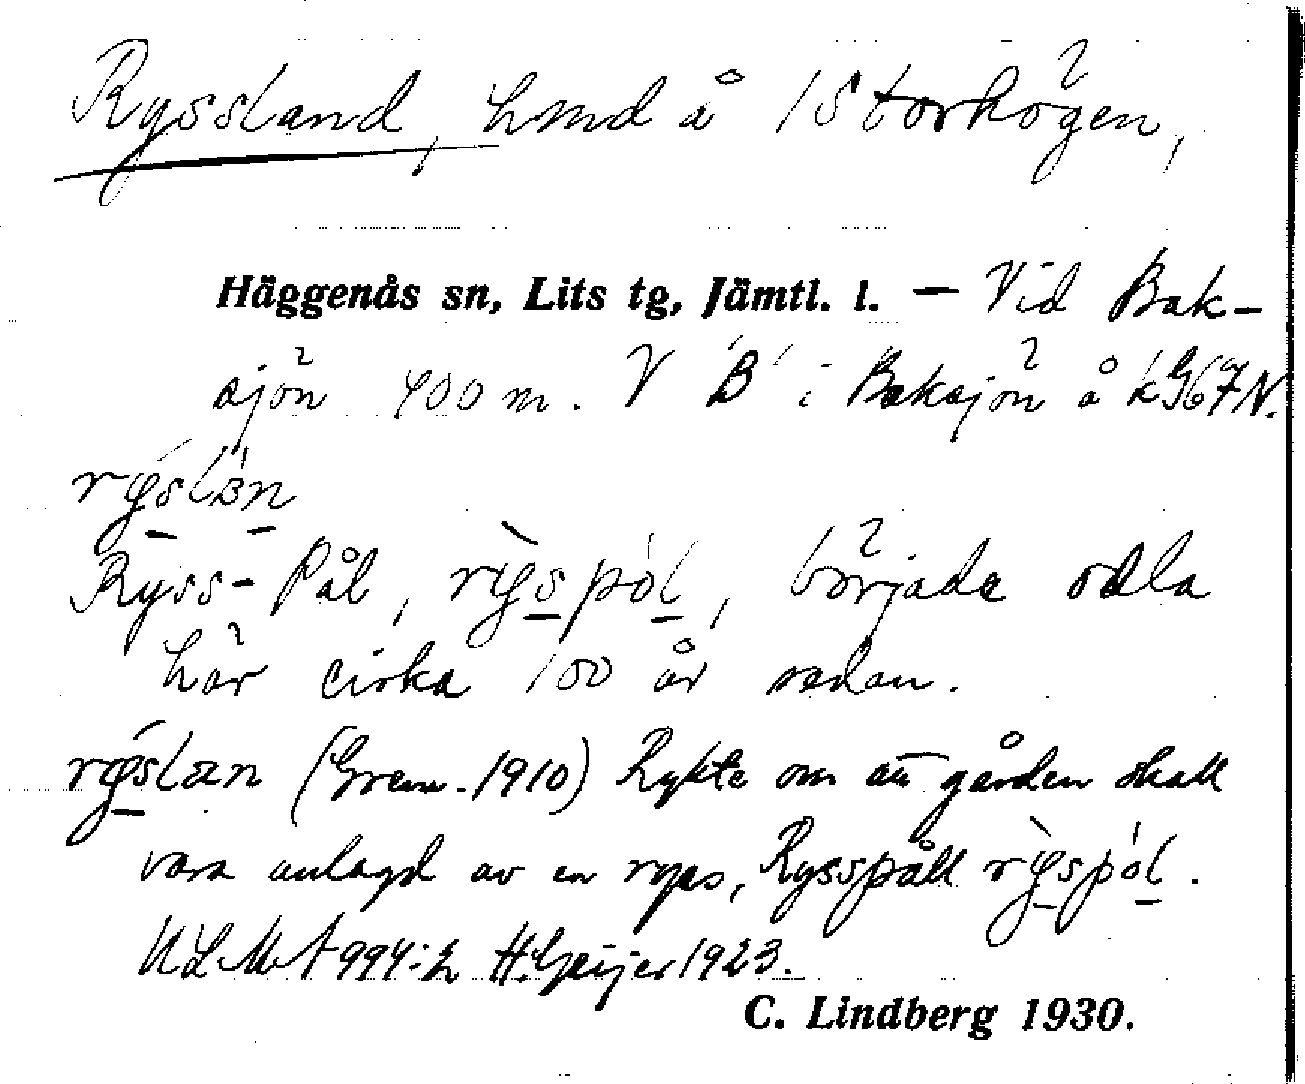 Ryssland, hmd å 1 Storhögen,
Häggenås sn, Lits tg, Jämtl. l. — Vid Bak-
sjön 400 m. V B i Baksjön å kG67N.
rýslàn
Ryss-Pål, rỳspól, började odla
här cirka 100 år sedan.
rýslan (Grem. 1910) Rykte om att gården skall
vara anlagd av en ryss, Rysspåll rỳspól.
ULMA 994:2 H. Geijer 1923.
C. Lindberg 1930.